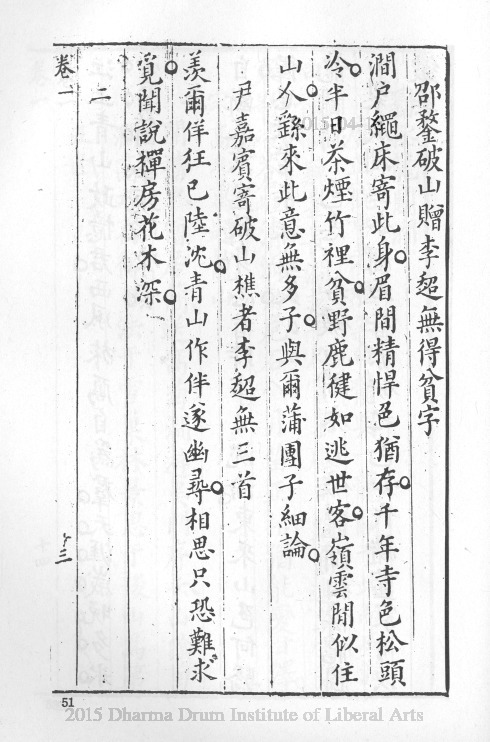 邵鍪破山贈李超無得貧字
澗户繩床寄此身眉間精悍色猶存千年寺色松頭
冷半日茶煙竹裡貧野鹿健如逃世客嶺雲閒似住
山人繇來此意無多子與爾蒲團子細論
尹嘉賓寄破山樵者李超無三首
羨爾佯狂已陸沈青山作伴逐幽尋相思只恐難求
覓聞說禪房花木深
二
卷一
十三
51
2015 Dharma Drum Institute of Liberal Arts